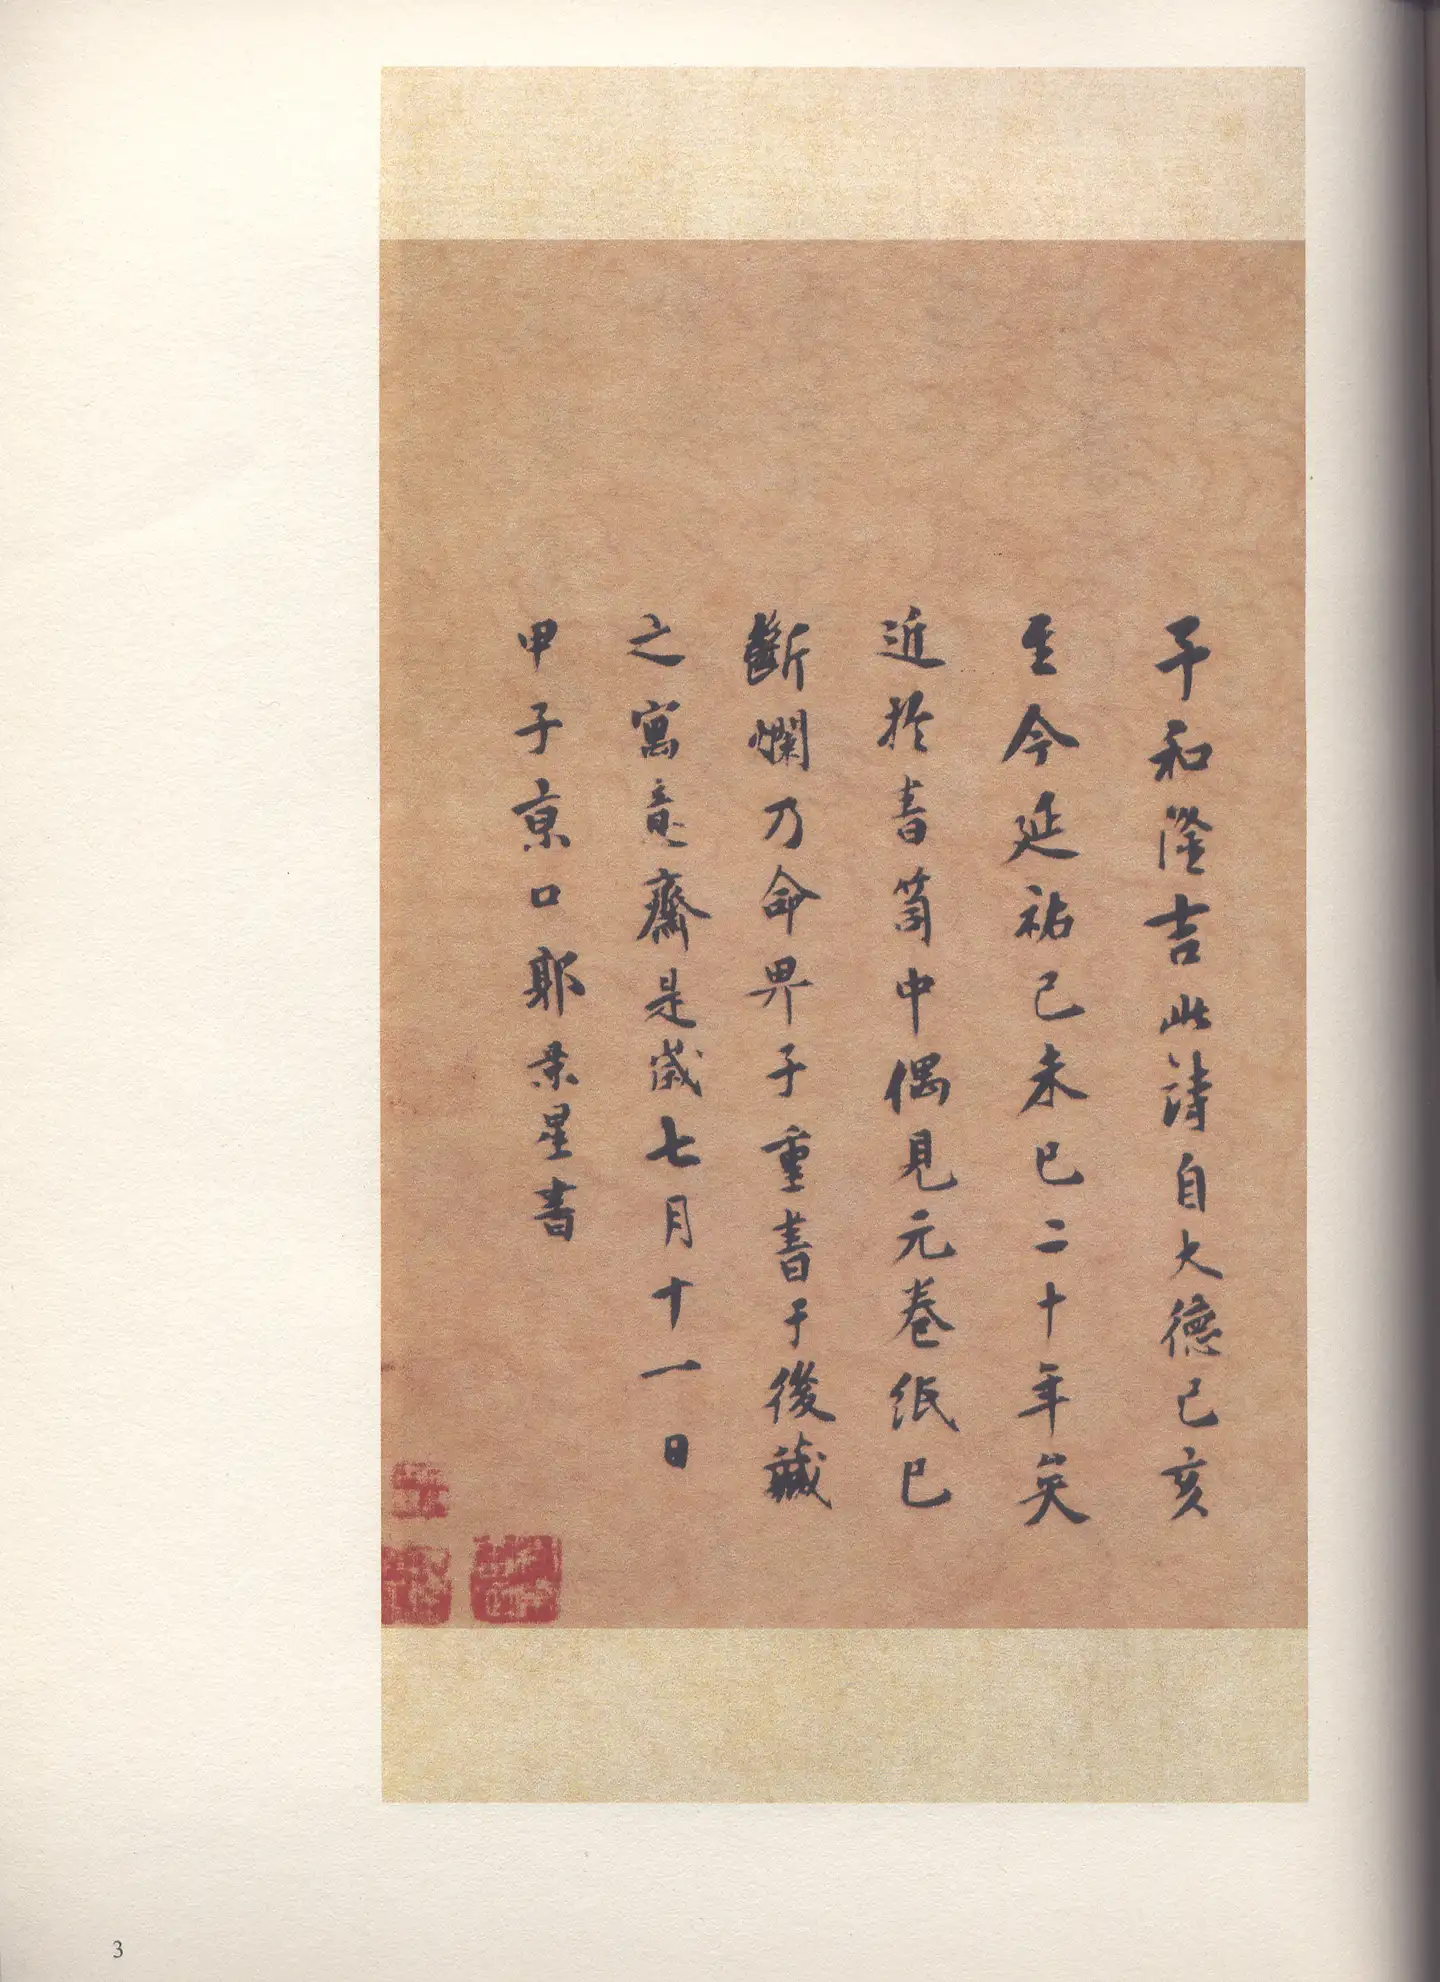 予和隆吉此詩自大德己亥
至今延祐己未已二十年矣
近於書笥中偶見元卷紙已
斷爛乃命畀子重書于後藏
之寓意齋是歲七月十一日
甲子京口郭景星書
3